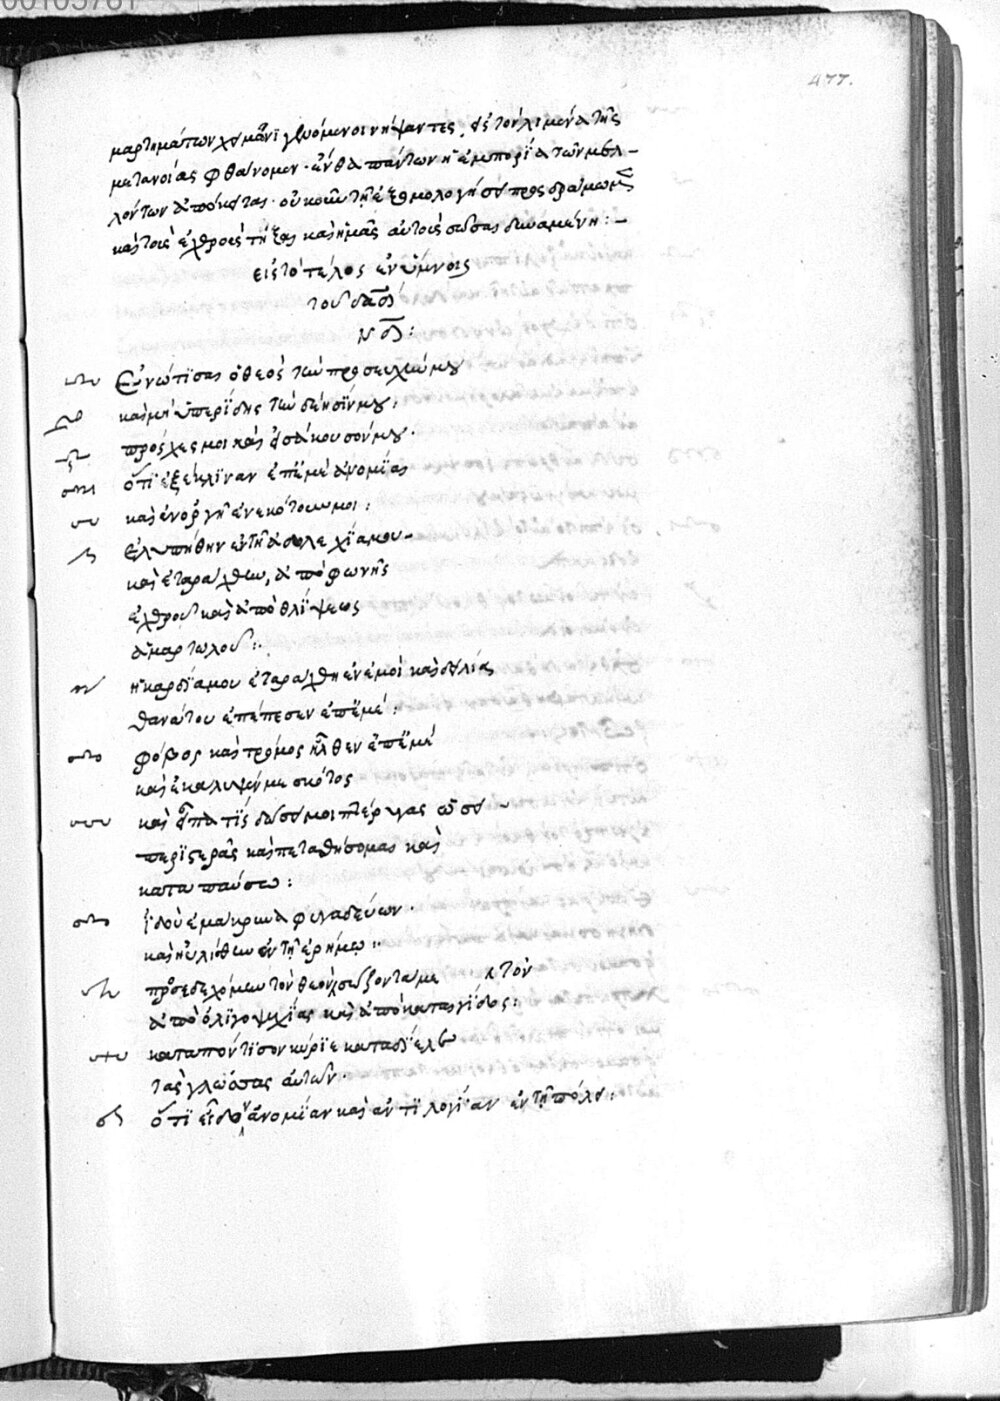 00105761
477.
μαρτημάτων χειμῶνι γενόμενοι νήψαντες, εἰς τὸν λιμένα τῆς
μετανοίας φθάνομεν· ἔνθα πάντων ἡ ἐμπορία τῶν μελ-
λόντων ἀπόκειται· οὐκοῦν τῇ ἐξομολογήσει προσδράμωμεν
καὶ τοὺς ἐχθροὺς καὶ ἡμᾶς αὐτοὺς σῶσαι δυναμένη:-
εἰς τὸ τέλος ἐν ὕμνοις
τοῦ δαδ
νδ:
Ἐνώτισαι ὁ θεὸς τὴν προσευχήν μου
καὶ μὴ ὑπερίδης τὴν δέησίν μου.
πρόσχες μοι καὶ εἰσάκουσόν μου.
ὅτι ἐξέκλιναν ἐπ' ἐμὲ ἀνομίας
καὶ ἐν ὀργῇ ἐνεκότουν μοι:
ἐλυπήθην ἐν τῇ ἀδολεσχίᾳ μου-
καὶ ἐταράχθην, ἀπὸ φωνῆς
ἐχθροῦ καὶ ἀπὸ θλίψεως
ἁμαρτωλοῦ:.
ἡ καρδία μου ἐταράχθη ἐν ἐμοὶ καὶ δειλία
θανάτου ἐπέπεσεν ἐπ' ἐμέ:
φόβος καὶ τρόμος ἦλθεν ἐπ' ἐμέ
καὶ ἐκάλυψέν με σκότος
καὶ εἶπα τίς δώσει μοι πτέρυγας ὡσεὶ
περιστερᾶς καὶ πετασθήσομαι καὶ
καταπαύσω:
ἰδοὺ ἐμάκρυνα φυγαδεύων.
καὶ ηὐλίσθην ἐν τῇ ἐρήμῳ:.
προσεδεχόμην τὸν θεὸν σώζοντα με
τὸν
ἀπὸ ὀλιγοψυχίας καὶ ἀπὸ καταιγίδος:
καταπόντισον κύριε καὶ καταδίελε
τὰς γλώσσας αὐτῶν.
ὅτι εἶδον ἀνομίαν καὶ ἀντιλογίαν ἐν τῇ πόλει: